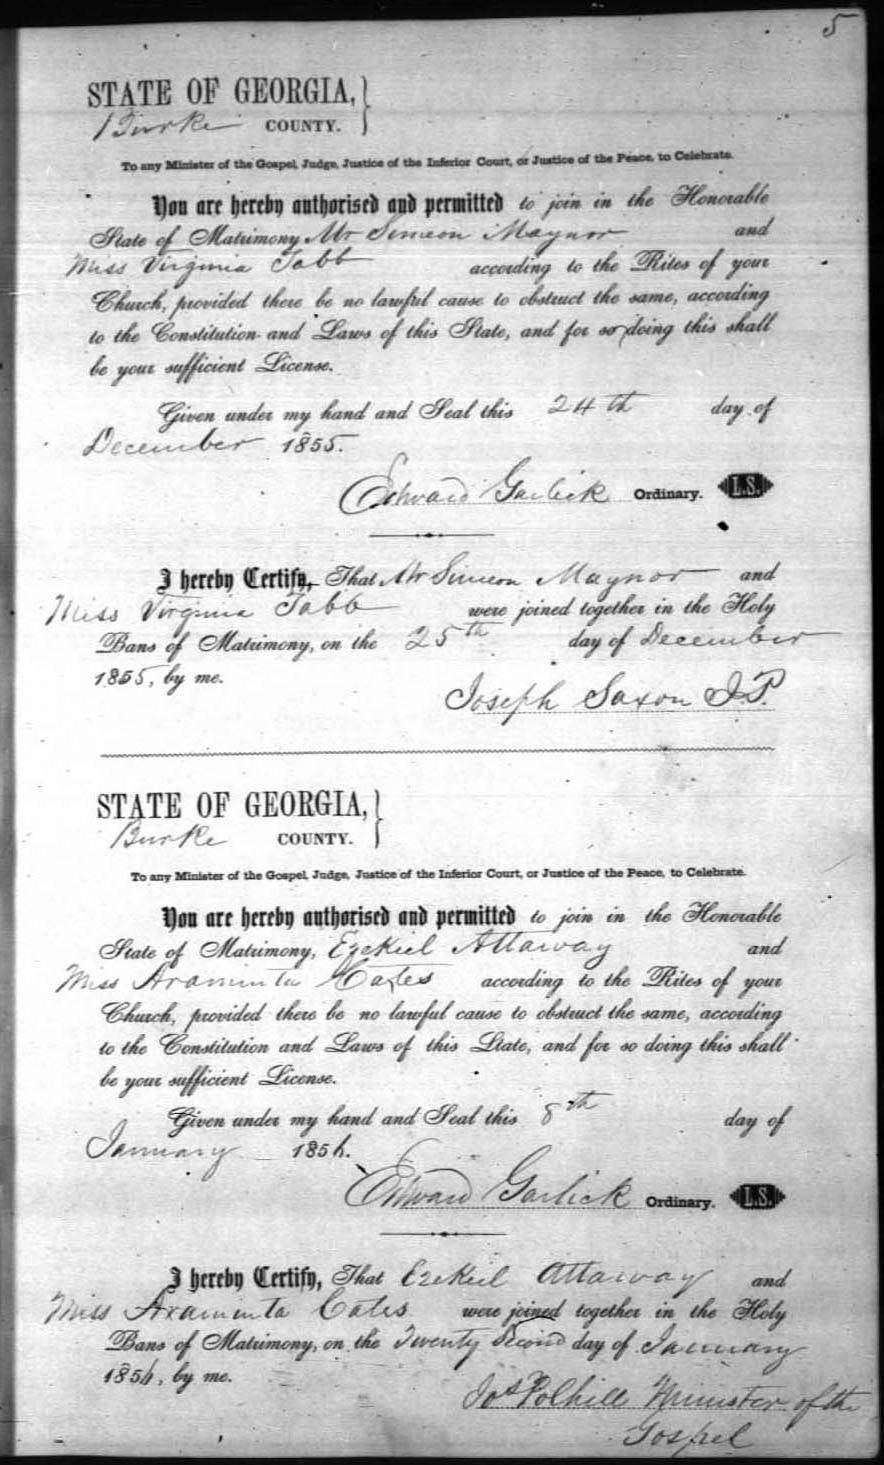 5
STATE OF GEORGIA,
Burke COUNTY.
To any Minister of the Gospel, Judge, Justice of the Inferior Court, or Justice of the Peace, to Celebrate.
You are hereby authorised and permitted to join in the Honorable
State of Matrimony Mr Simeon Maynor and
Miss Virginia Tabb according to the Rites of your
Church, provided there be no lawful cause to obstruct the same, according
to the Constitution and Laws of this State, and for so doing this shall
be your sufficient License.
Given under my hand and Seal this 24th day of
December 1855.
Edward Garlick Ordinary. L.S.
I hereby Certify, That Mr Simeon Maynor and
Miss Virginia Tabb were joined together in the Holy
Bans of Matrimony, on the 25th day of December
1855, by me.
Joseph Saxon J.P.
STATE OF GEORGIA,
Burke COUNTY.
To any Minister of the Gospel, Judge, Justice of the Inferior Court, or Justice of the Peace, to Celebrate.
You are hereby authorised and permitted to join in the Honorable
State of Matrimony, Ezekiel Attaway and
Miss Araminta Cates according to the Rites of your
Church, provided there be no lawful cause to obstruct the same, according
to the Constitution and Laws of this State, and for so doing this shall
be your sufficient License.
Given under my hand and Seal this 8th day of
January 1856.
Edward Garlick Ordinary. L.S.
I hereby Certify, That Ezekiel Attaway and
Miss Araminta Cates were joined together in the Holy
Bans of Matrimony, on the Twenty Second day of January
1856, by me.
Jos Polhill Minister of the
Gospel